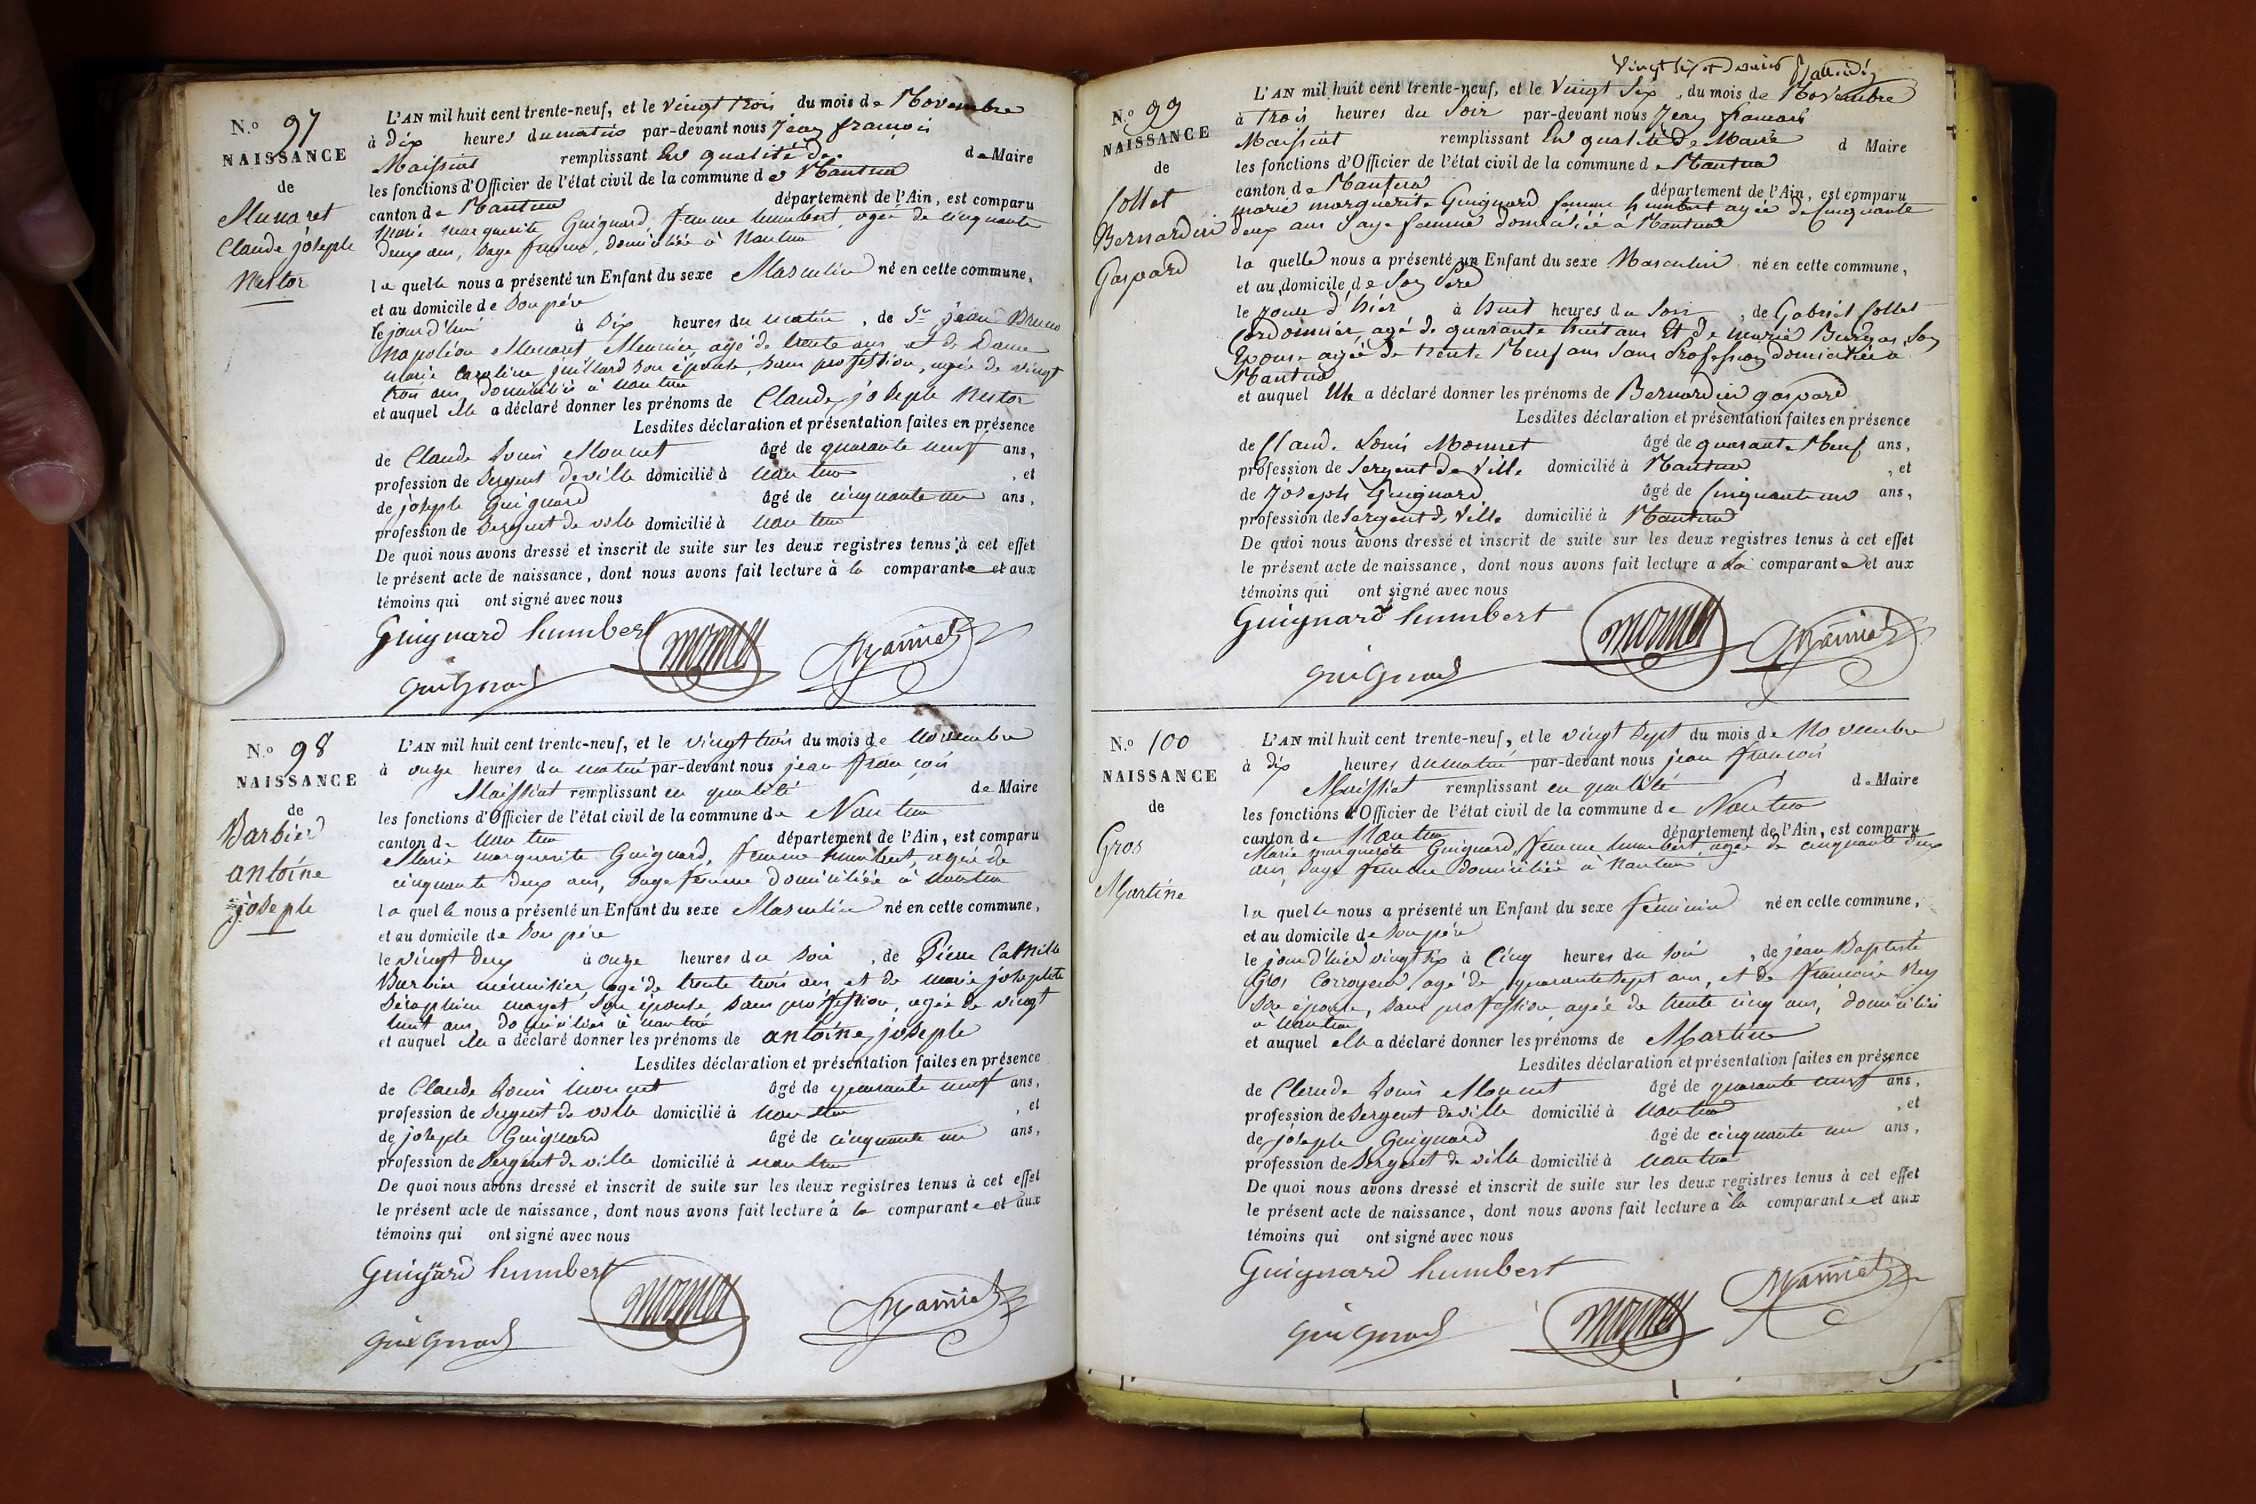 N.º 97
NAISSANCE
de
Munaret
Claude joseph
Nestor
L'AN mil huit cent trente-neuf, et le vingt trois du mois de Novembre
à dix heures du matin par-devant nous Jean françois
Maissiat remplissant En qualité de de Maire
les fonctions d'Officier de l'état civil de la commune de Nantua
canton de Nantua département de l'Ain, est comparu
Marie marguerite Guignard femme humbert, agée de cinquante
deux ans, sage femme, domiciliée à Nantua
la quelle nous a présenté un Enfant du sexe Masculin né en cette commune,
et au domicile de son père
le jour d'hui à dix heures du matin, de Sr jean Bruno
Napoléon Munaret Meunier agé de trente ans et de Dame
Marie Caroline juillard son épouse, sans profession, agée de vingt
trois ans, domiciliés à nantua
et auquel elle a déclaré donner les prénoms de Claude joseph Nestor
Lesdites déclaration et présentation faites en présence
de Claude Louis Monnet âgé de quarante neuf ans,
profession de Sergent de ville domicilié à nantua, et
de joseph Guignard âgé de cinquante un ans,
profession de Sergent de ville domicilié à nantua
De quoi nous avons dressé et inscrit de suite sur les deux registres tenus à cet effet
le présent acte de naissance, dont nous avons fait lecture à la comparante et aux
témoins qui ont signé avec nous
Guignard humbert monnet
Guignard
N.º 98
NAISSANCE
de
Barbier
antoine
joseph
L'AN mil huit cent trente-neuf, et le vingt trois du mois de Novembre
à onze heures du matin par-devant nous jean françois
Maissiat remplissant en qualité de Maire
les fonctions d'Officier de l'état civil de la commune de Nantua
canton de nantua département de l'Ain, est comparu
Marie marguerite Guignard, femme humbert, agée de
cinquante deux ans, sage femme domiciliée à nantua
la quelle nous a présenté un Enfant du sexe Masculin né en cette commune,
et au domicile de son père
le vingt deux à onze heures du soir, de Pierre Camille
Barbier menuisier, agé de trente trois ans et de marie josephte
Séraphine mayet, son épouse sans profession, agée de vingt
huit ans, domiciliés à nantua
et auquel elle a déclaré donner les prénoms de antoine joseph
Lesdites déclaration et présentation faites en présence
de Claude Louis monnet âgé de quarante neuf ans,
profession de Sergent de ville domicilié à nantua, et
de joseph Guignard âgé de cinquante un ans,
profession de Sergent de ville domicilié à nantua
De quoi nous avons dressé et inscrit de suite sur les deux registres tenus à cet effet
le présent acte de naissance, dont nous avons fait lecture à la comparante et aux
témoins qui ont signé avec nous
Guignard humbert monnet
Guignard
vingt six
N.º 99
NAISSANCE
de
Collet
Bernardin
Gaspard
L'AN mil huit cent trente-neuf, et le Vingt Six, du mois de Novembre
à trois heures du Soir par-devant nous Jean francois
Maissiat remplissant En qualité de Maire d Maire
les fonctions d'Officier de l'état civil de la commune de Nantua
canton de Nantua département de l'Ain, est comparu
marie marguerite Guignard femme humbert agée de Cinquante
deux ans Sage femme domiciliée à Nantua
la quelle nous a présenté un Enfant du sexe Masculin né en cette commune,
et au domicile de Son Père
le jour d'hier à huit heures du Soir, de Gabriel Collet
Cordonnier agé de quarante huit ans Et de marie Burgos Son
Epouse agée de trente Neuf ans Sans Profession domiciliée à
Nantua
et auquel Elle a déclaré donner les prénoms de Bernardin gaspard
Lesdites déclaration et présentation faites en présence
de Claude Louis Monnet âgé de quarante Neuf ans,
profession de Sergent de Ville domicilié à Nantua, et
de Joseph Guignard âgé de Cinquante un ans,
profession de Sergent de Ville domicilié à Nantua
De quoi nous avons dressé et inscrit de suite sur les deux registres tenus à cet effet
le présent acte de naissance, dont nous avons fait lecture a La comparante et aux
témoins qui ont signé avec nous
Guignard humbert monnet
Guignard
N.º 100
NAISSANCE
de
Gros
Martine
L'AN mil huit cent trente-neuf, et le vingt sept du mois de Novembre
à dix heures du matin par-devant nous jean françois
Maissiat remplissant en qualité de Maire
les fonctions d'Officier de l'état civil de la commune de Nantua
canton de Nantua département de l'Ain, est comparu
Marie marguerite Guignard, femme humbert, agée de cinquante deux
ans, sage femme domiciliée à nantua
la quelle nous a présenté un Enfant du sexe féminin né en cette commune,
et au domicile de son père
le jour d'hier vingt six à Cinq heures du soir, de jean Baptiste
Gros Corroyeur, agé de quarante sept ans, et de francoise Rey
son épouse, sans profession agée de trente cinq ans, domiciliés
à Nantua
et auquel elle a déclaré donner les prénoms de Martine
Lesdites déclaration et présentation faites en présence
de Claude Louis Monnet âgé de quarante neuf ans,
profession de Sergent de ville domicilié à nantua, et
de joseph Guignard âgé de cinquante un ans,
profession de Sergent de ville domicilié à nantua
De quoi nous avons dressé et inscrit de suite sur les deux registres tenus à cet effet
le présent acte de naissance, dont nous avons fait lecture à la comparante et aux
témoins qui ont signé avec nous
Guignard humbert
Guignard monnet